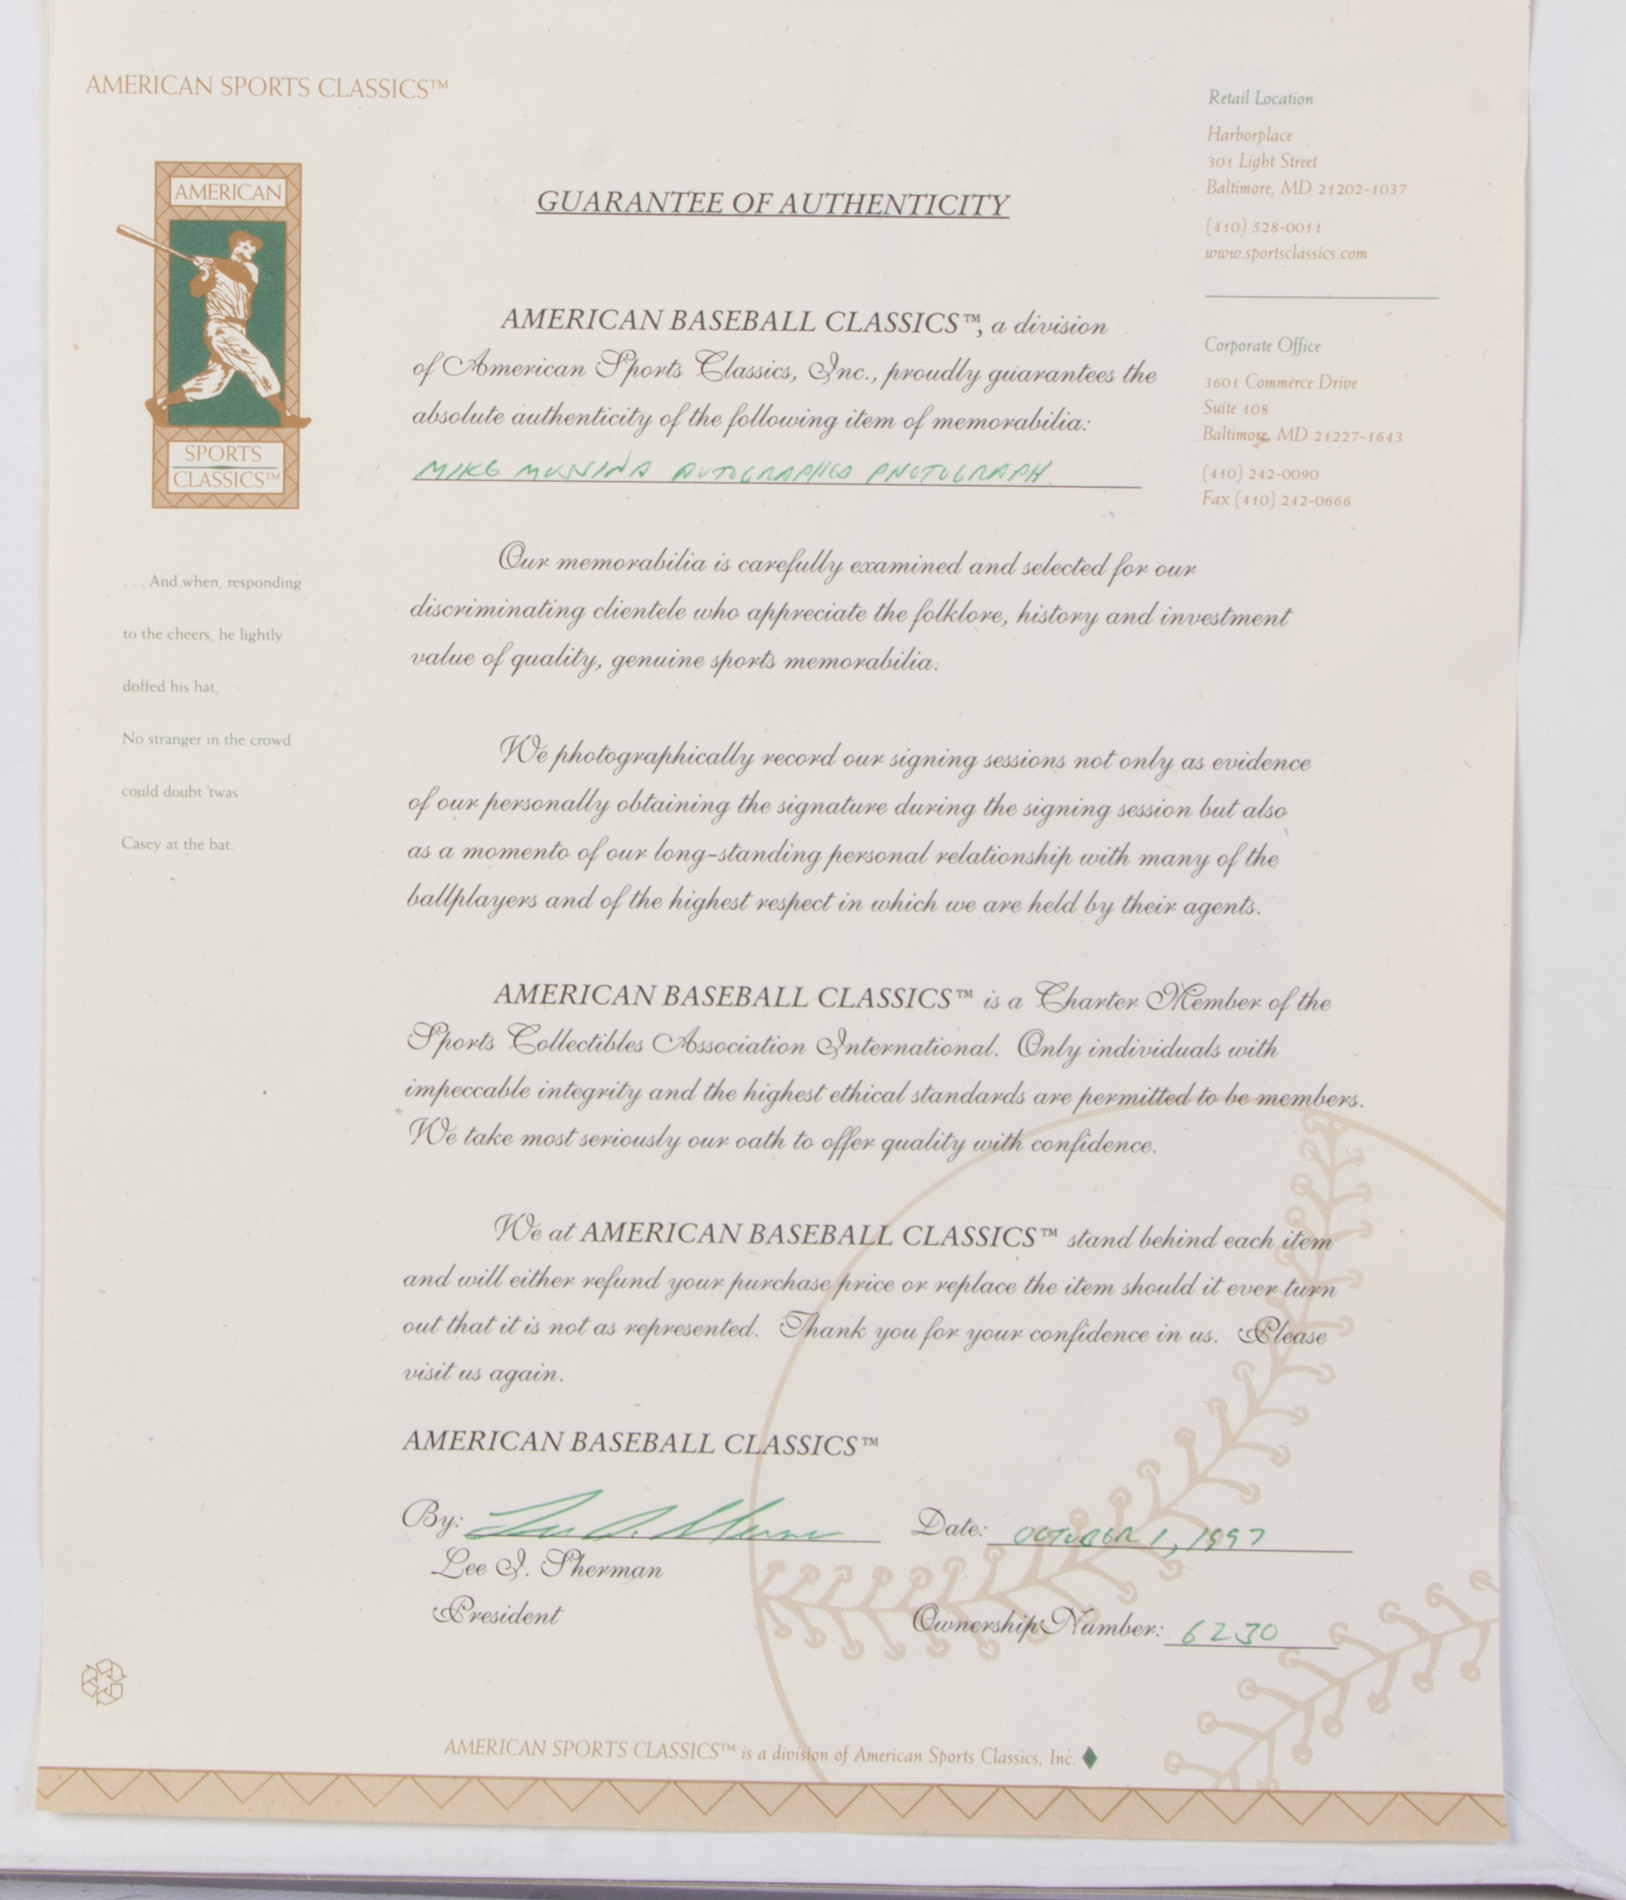 AMERICAN SPORTS CLASSICS™
AMERICAN
SPORTS
CLASSICS™
. . . And when, responding
to the cheers, he lightly
doffed his hat,
No stranger in the crowd
could doubt 'twas
Casey at the bat.
Retail Location
Harborplace
301 Light Street
Baltimore, MD 21202-1037
(410) 528-0011
www.sportsclassics.com
Corporate Office
3601 Commerce Drive
Suite 108
Baltimore, MD 21227-1643
(410) 242-0090
Fax (410) 242-0666
GUARANTEE OF AUTHENTICITY
AMERICAN BASEBALL CLASSICS™, a division
of American Sports Classics, Inc., proudly guarantees the
absolute authenticity of the following item of memorabilia:
MIKE MUSSINA AUTOGRAPHED PHOTOGRAPH
Our memorabilia is carefully examined and selected for our
discriminating clientele who appreciate the folklore, history and investment
value of quality, genuine sports memorabilia.
We photographically record our signing sessions not only as evidence
of our personally obtaining the signature during the signing session but also
as a momento of our long-standing personal relationship with many of the
ballplayers and of the highest respect in which we are held by their agents.
AMERICAN BASEBALL CLASSICS™ is a Charter Member of the
Sports Collectibles Association International. Only individuals with
impeccable integrity and the highest ethical standards are permitted to be members.
We take most seriously our oath to offer quality with confidence.
We at AMERICAN BASEBALL CLASSICS™ stand behind each item
and will either refund your purchase price or replace the item should it ever turn
out that it is not as represented. Thank you for your confidence in us. Please
visit us again.
AMERICAN BASEBALL CLASSICS™
By: Lee I. Sherman Date: OCTOBER 1, 1997
Lee I. Sherman
President
Ownership Number: 6230
AMERICAN SPORTS CLASSICS™ is a division of American Sports Classics, Inc.